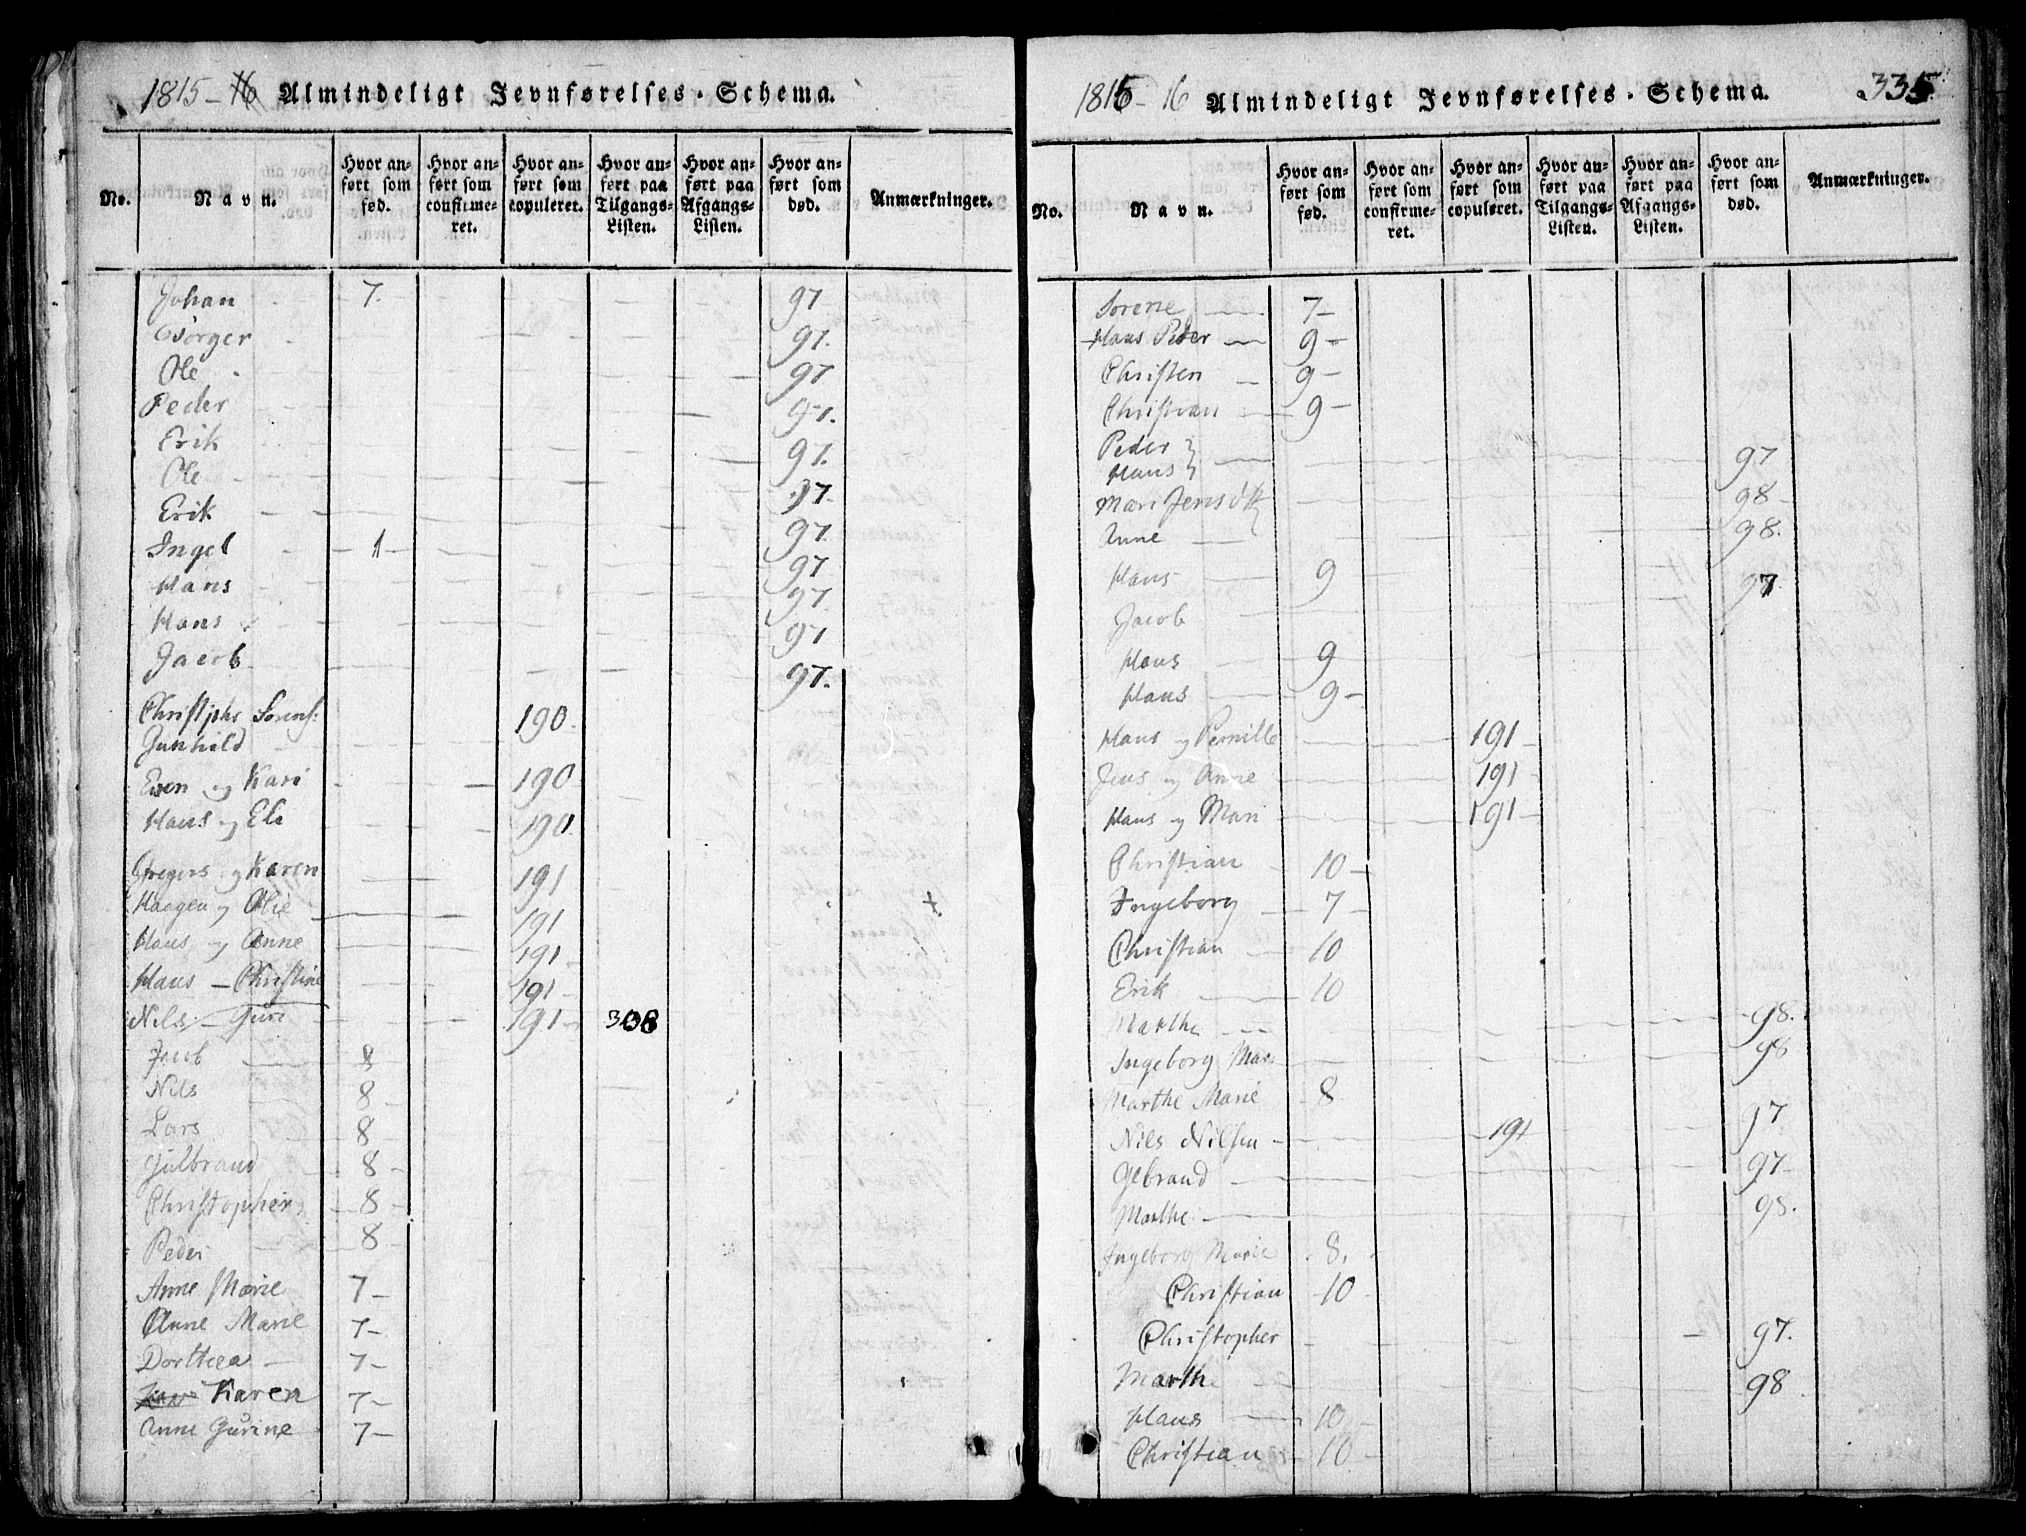 1815-16 Almindeligt Jevnførelses-Schema.
No. Navn. Hvor anført som fød. Hvor anført som confirmeret. Hvor anført som copuleret. Hvor anført paa Tilgangs-Listen. Hvor anført paa Afgangs-Listen. Hvor anført som død. Anmærkninger.
Johan 7. 97
Børger 97.
Ole 97
Peder 97.
Erik 97.
Ole 97
Erik 97.
Ingel 1 97
Hans 97
Hans 97
Jacob 97.
Christphr Sorens: 190.
Gunhild
Even og Kari 190
Hans og Eli 190
Gregers og Karen 191
Haagen og Olie 191
Hans og Anne 191
Hans — Christine 191
Nils — Guri 191 308
Jacob 8
Nils 8
Lars 8
Gulbrand 8
Christopher 8
Peder 8
Anne Marie 7
Anne Marie 7
Dorthea 7
Karen 7
Anne Gurine 7
1815-16 Almindeligt Jevnførelses-Schema. 335
No. Navn. Hvor anført som fød. Hvor anført som confirmeret. Hvor anført som copuleret. Hvor anført paa Tilgangs-Listen. Hvor anført paa Afgangs-Listen. Hvor anført som død. Anmærkninger.
Sorene 7
Hans Peder 9
Christen 9
Christian 9
Peder
Hans 97
Mari Jensdtr 98
Anne 98.
Hans 9
Jacob 97
Hans 9
Hans 9
Hans og Pernille 191
Jens og Anne 191
Hans og Mari 191
Christian 10
Ingeborg 7
Christian 10
Erik 10
Marthe 98.
Ingeborg Mar: 98
Marthe Marie 8
Nils Nilsen 191 97
Gebrand 97
Marthe 98.
Ingeborg Marie 8.
Christian 10
Christopher 97.
Marthe 98
Hans 10
Christian 10